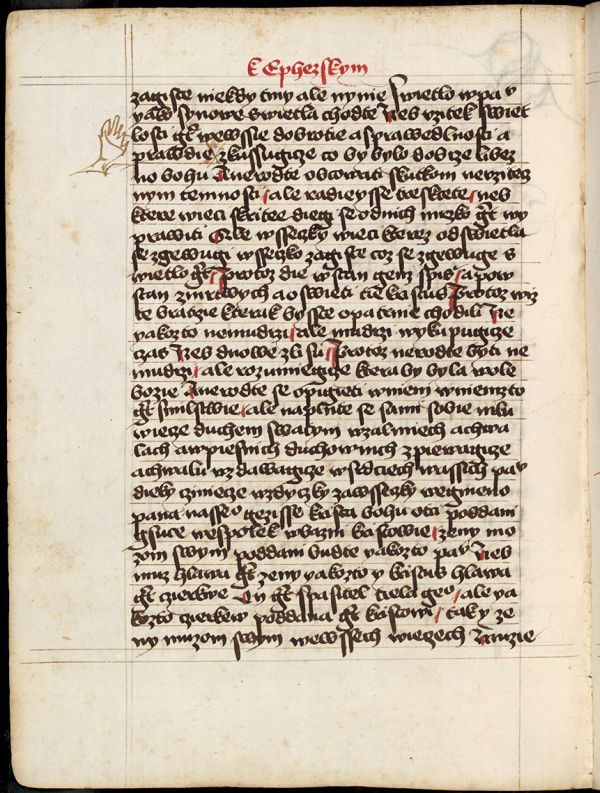 k Ephezskym
zagiste niekdy tmy ale nynie swietlo w pa
yako synowe swietla chodte Neb uzitek swiet
losti gt wewssie dobrotie a sprawedlnosti a
prawdie zkussugicze co by bylo dobrze libez
no bohu A nerodte obcowati skutkom neuzitez
nym temnosti ale radieysse tresktete neb
ktere wieci skritee diegi se od nich mrzko gt wy
prawiti Ale wsseczky wieci kterez od swietla
se zgewugi wsseczko zagiste coz se zgewuge s
wietlo gt Protoz die wstan genz spis a pow
stan z mrtwych a oswieti tie kristus Protoz wiz
te bratrzie kterak byste opatrnie chodili Ne
yakozto nemudrzi ale mudrzi wykupugicze
czas Neb dnowe zli su Protoz nerodte byti ne
mudrzi ale rozumiegicze ktera by byla wole
bozie A nerodte se opigieti winem w niemzto
gt smilstwie ale naplnte se sami sobie mlu
wiecze duchem swatym w zalmiech a chwa
lach a w piesnich duchownich zpiewagicze
a chwalu wzdawagicze w srdciech wassich pa
dieky cziniecze wzdyczky zawsseczky we gmeno
pana nasseo gezisse krista bohu otci poddani
gsuce wespolek w bazni kristowie zeny mo
zom swym poddani budte yakozto pa Neb
muz hlawa gt zeny yakozto y kristus hlawa
gt czierkwe On gt spasitel tiela geo ale ya
kozto czierkew poddana gt kristowi tak y ze
ny muzom swym wewssech wiecech A muzie